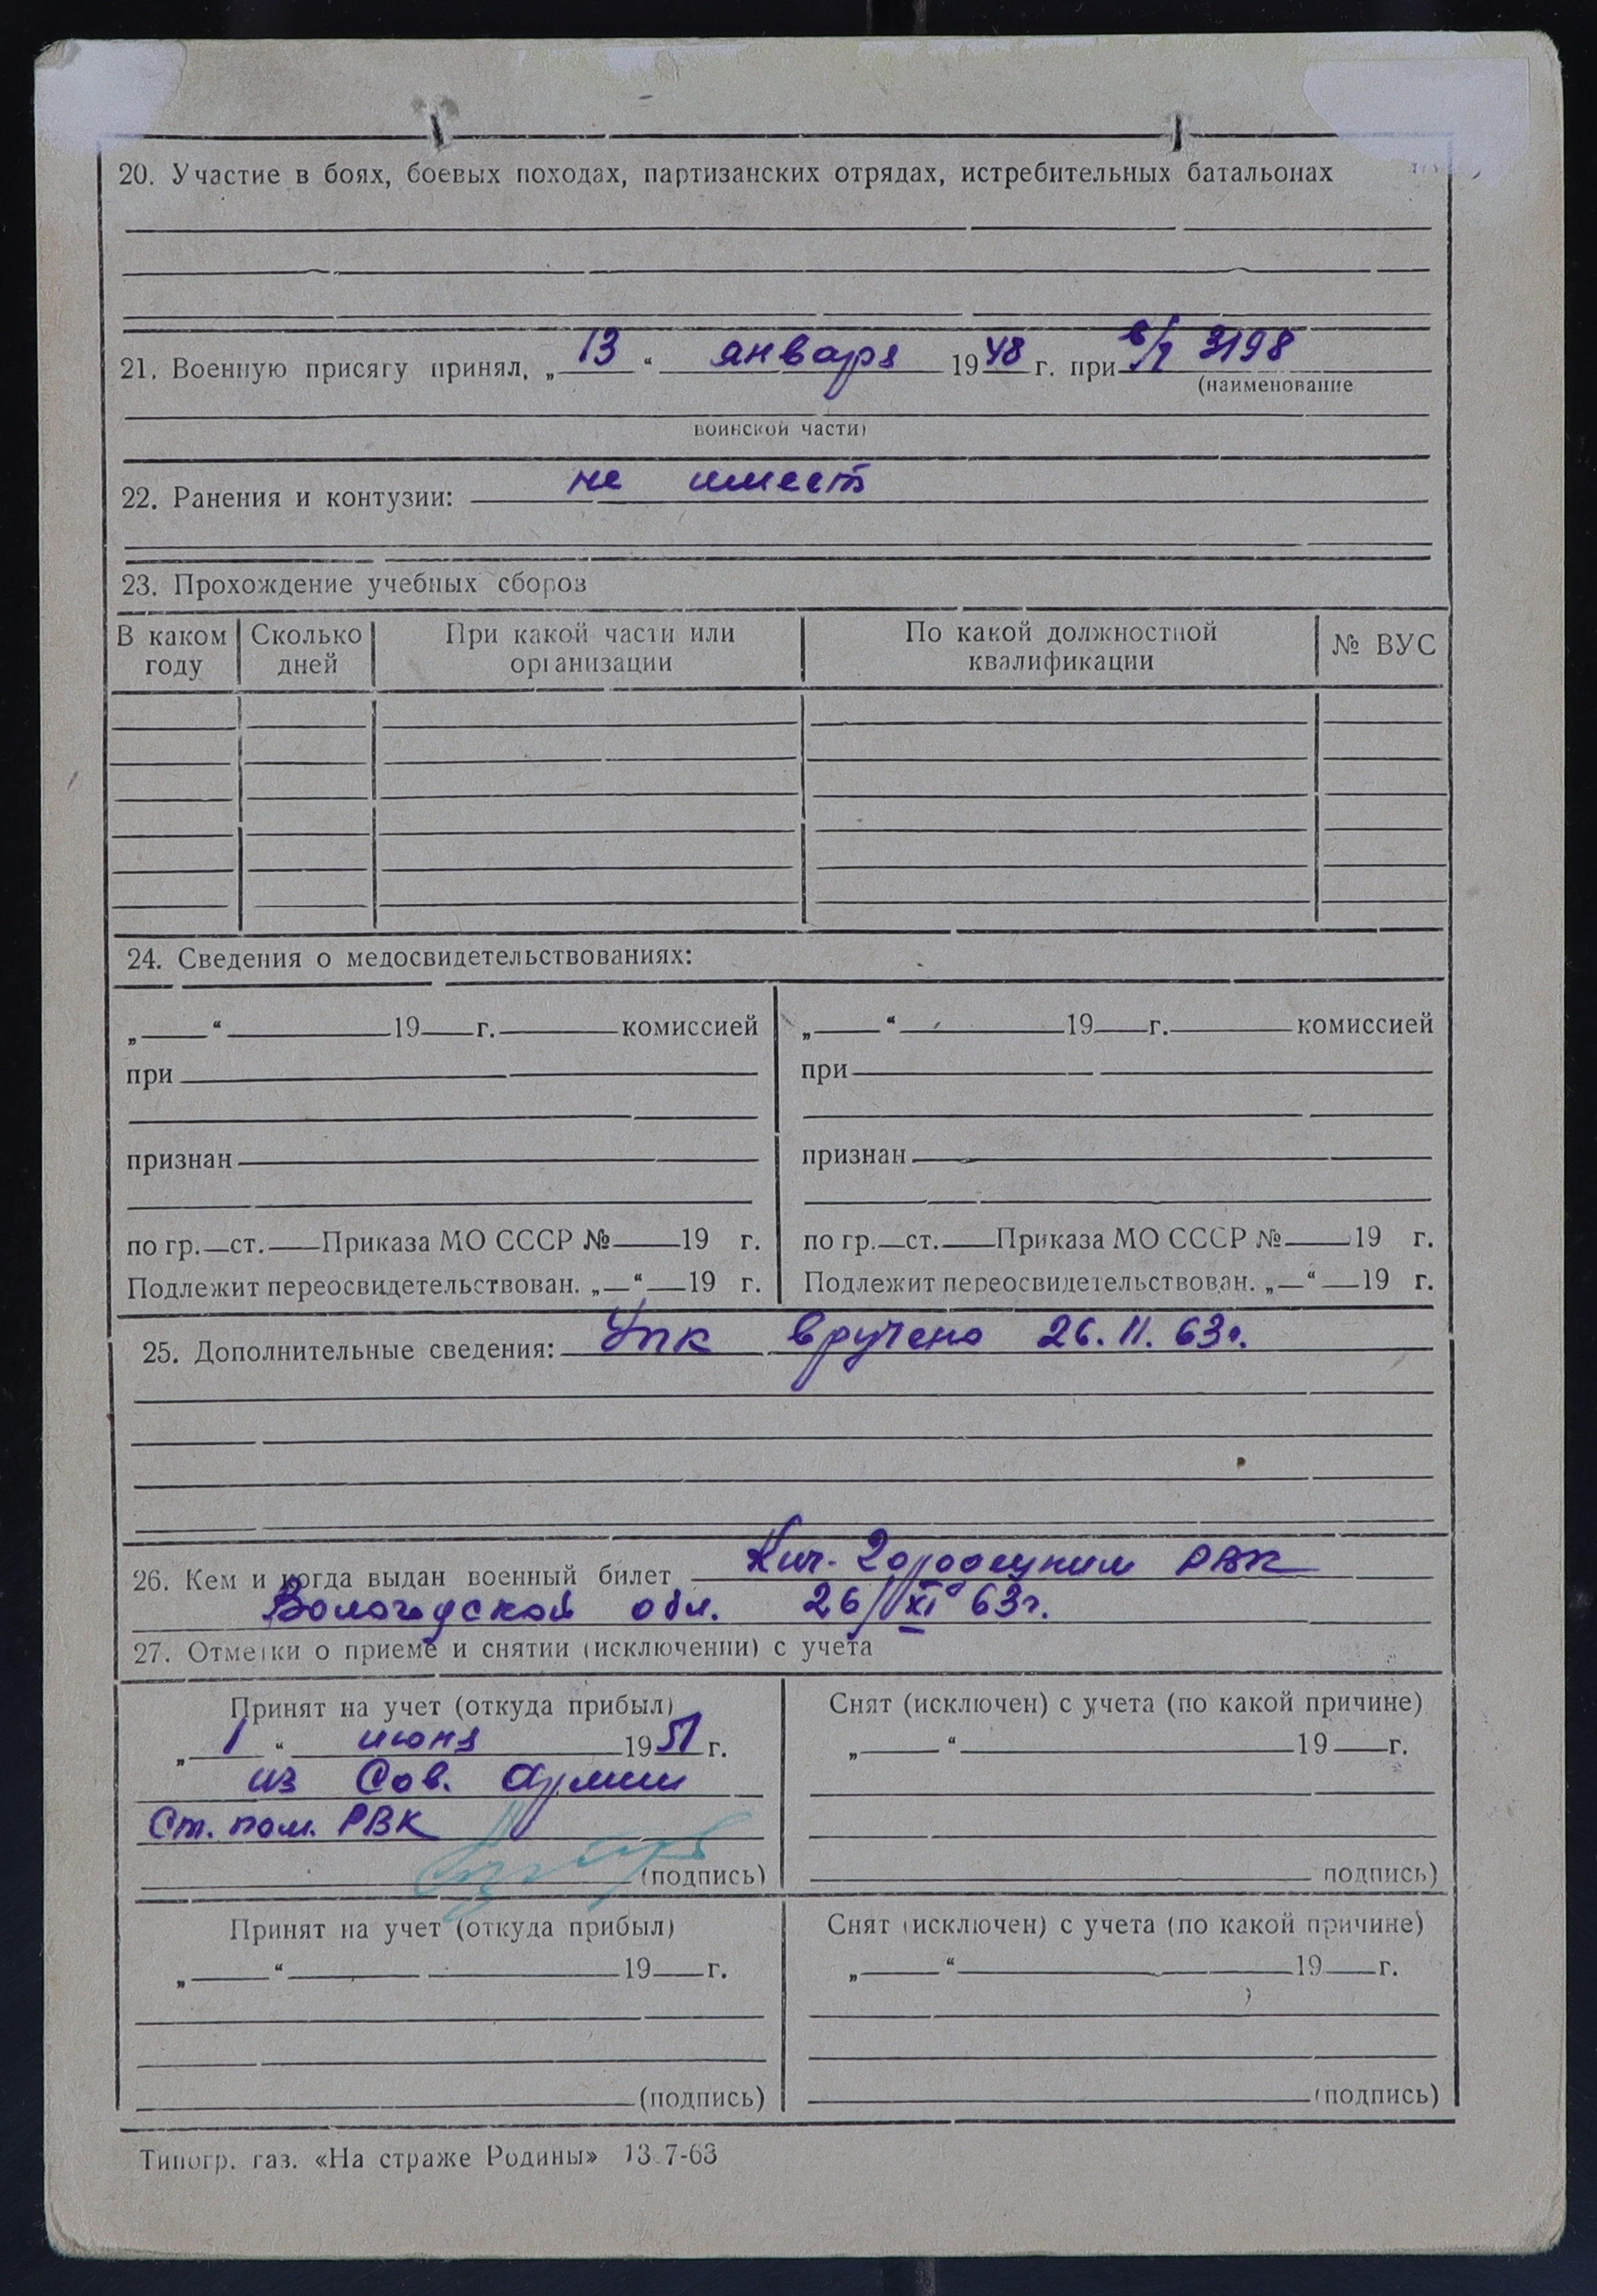 20. Участие в боях, боевых походах, партизанских отрядах, истребительных батальонах
21. Военную присягу принял, „ 13 “ января 1948 г. при в/ч 3198
(наименование
воинской части)
22. Ранения и контузии: не имеет
23. Прохождение учебных сборов
В каком году Сколько дней При какой части или организации По какой должностной квалификации № ВУС
24. Сведения о медосвидетельствованиях:
„ “ 19 г. комиссией „ “ 19 г. комиссией
при при
признан признан
по гр. ст. Приказа МО СССР № 19 г. по гр. ст. Приказа МО СССР № 19 г.
Подлежит переосвидетельствован. „ “ 19 г. Подлежит переосвидетельствован. „ “ 19 г.
25. Дополнительные сведения: Упк вручено 26.11.63г.
26. Кем и когда выдан военный билет Кич-Городецким РВК
Вологодской обл. 26/XI 63г.
27. Отметки о приеме и снятии (исключении) с учета
Принят на учет (откуда прибыл) Снят (исключен) с учета (по какой причине)
„ 1 “ июня 1951 г. „ “ 19 г.
из Сов. Армии
Ст. пом. РВК
(подпись) подпись)
Принят на учет (откуда прибыл) Снят (исключен) с учета (по какой причине)
„ “ 19 г. „ “ 19 г.
(подпись) (подпись)
Типогр. газ. «На страже Родины» 13.7-63